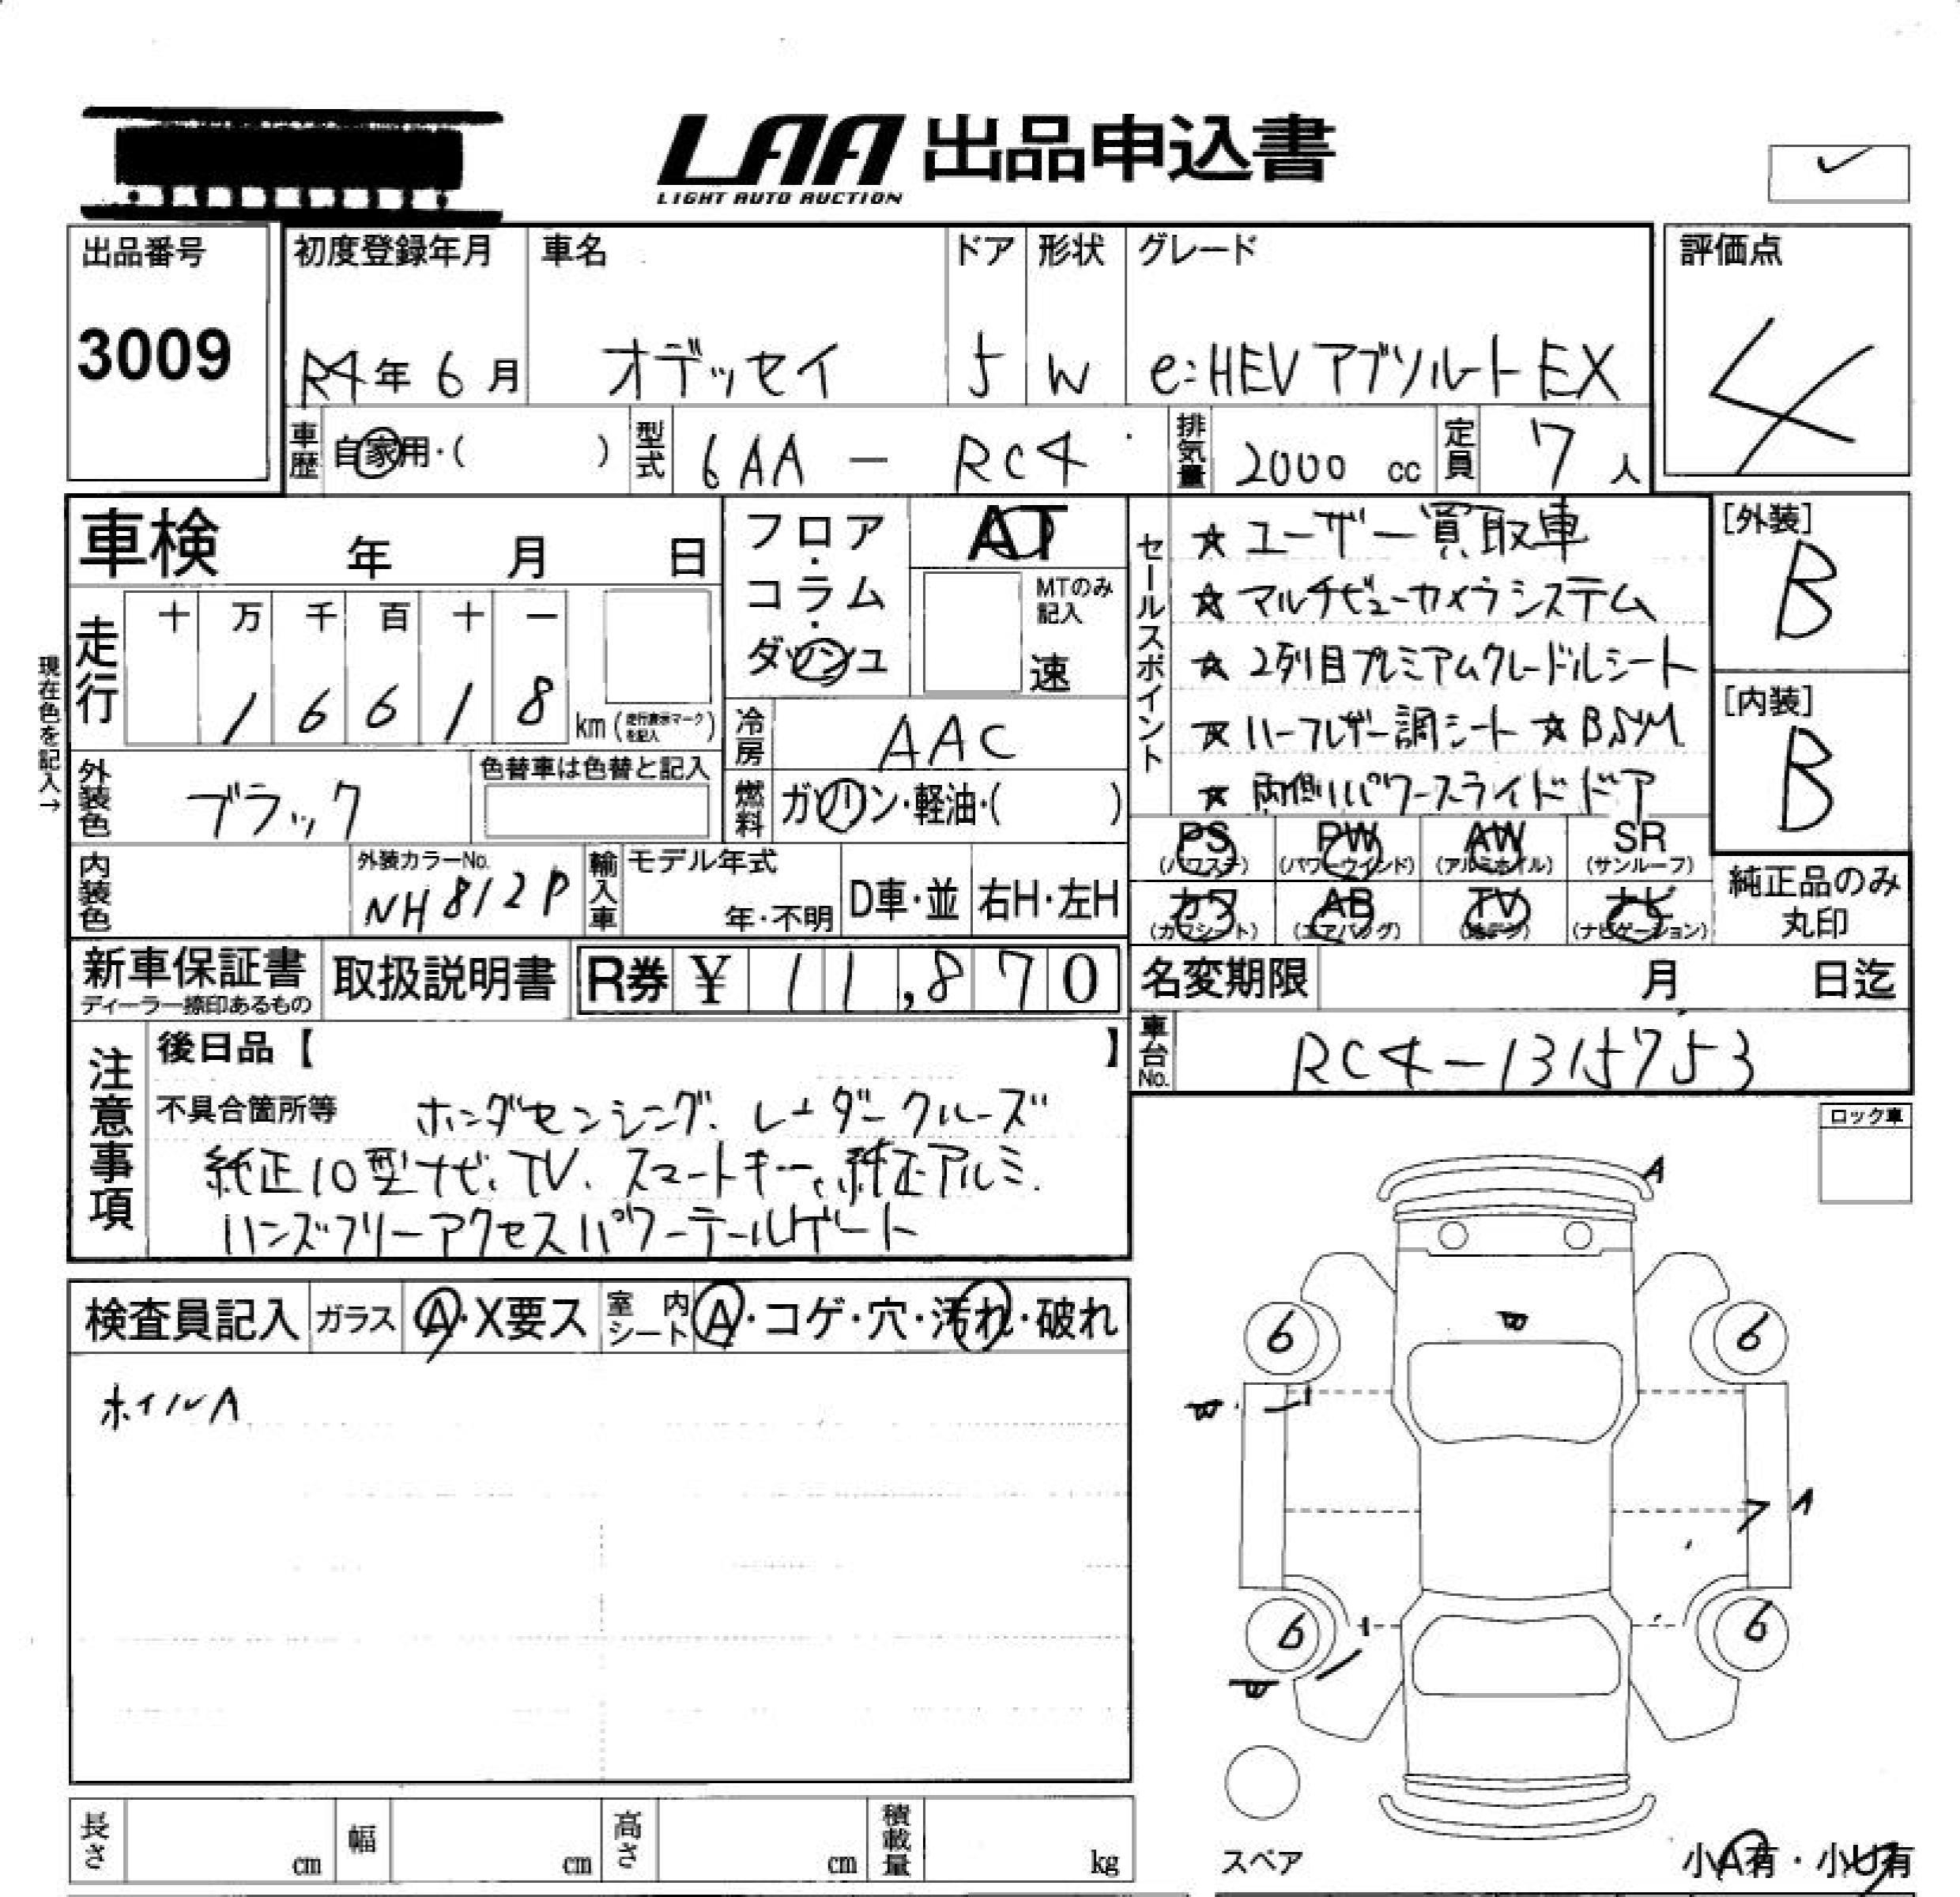 LAA 出品申込書
LIGHT AUTO AUCTION
✓
出品番号
3009
初度登録年月
R4年 6月
車名
オデッセイ
ドア
5
形状
W
グレード
e:HEV アブソルート EX
評価点
4
車歴
自家用・( )
型式
6AA - RC4
排気量
2000 cc
定員
7 人
車検 年 月 日
走行
十 万 千 百 十 一
1 6 6 1 8 km (走行表示マークを記入)
現在色を記入→
フロア・コラム・ダッシュ
AT
MTのみ記入
速
冷房
AAC
燃料
ガソリン・軽油・( )
外装色
ブラック
色替車は色替と記入
内装色
外装カラーNo.
NH812P
輸入車
モデル年式
年・不明
D車・並
右H・左H
セールスポイント
☆ ユーザー買取車
☆ マルチビューカメラシステム
☆ 2列目プレミアムクレードルシート
☆ ハーフレザー調シート ☆ BSM
☆ 両側パワースライドドア
[外装]
B
[内装]
B
PS (パワステ)
PW (パワーウインド)
AW (アルミホイル)
SR (サンルーフ)
カワ (カワシート)
AB (エアバッグ)
TV (地デジ)
ナビ (ナビゲーション)
純正品のみ
丸印
新車保証書
ディーラー捺印あるもの
取扱説明書
R券 ¥ 11,870
名変期限 月 日迄
車台No.
RC4-1315753
注意事項
後日品【 】
不具合箇所等 ホンダセンシング、レーダークルーズ
純正10型ナビ、TV、スマートキー、純正アルミ、
ハンズフリーアクセスパワーテールゲート
ロック車
検査員記入
ガラス
A・X要ス
室内シート
A・コゲ・穴・汚れ・破れ
ホイルA
A
6
6
A
6
6
スペア
小A有・小U有
長さ cm
幅 cm
高さ cm
積載量 kg